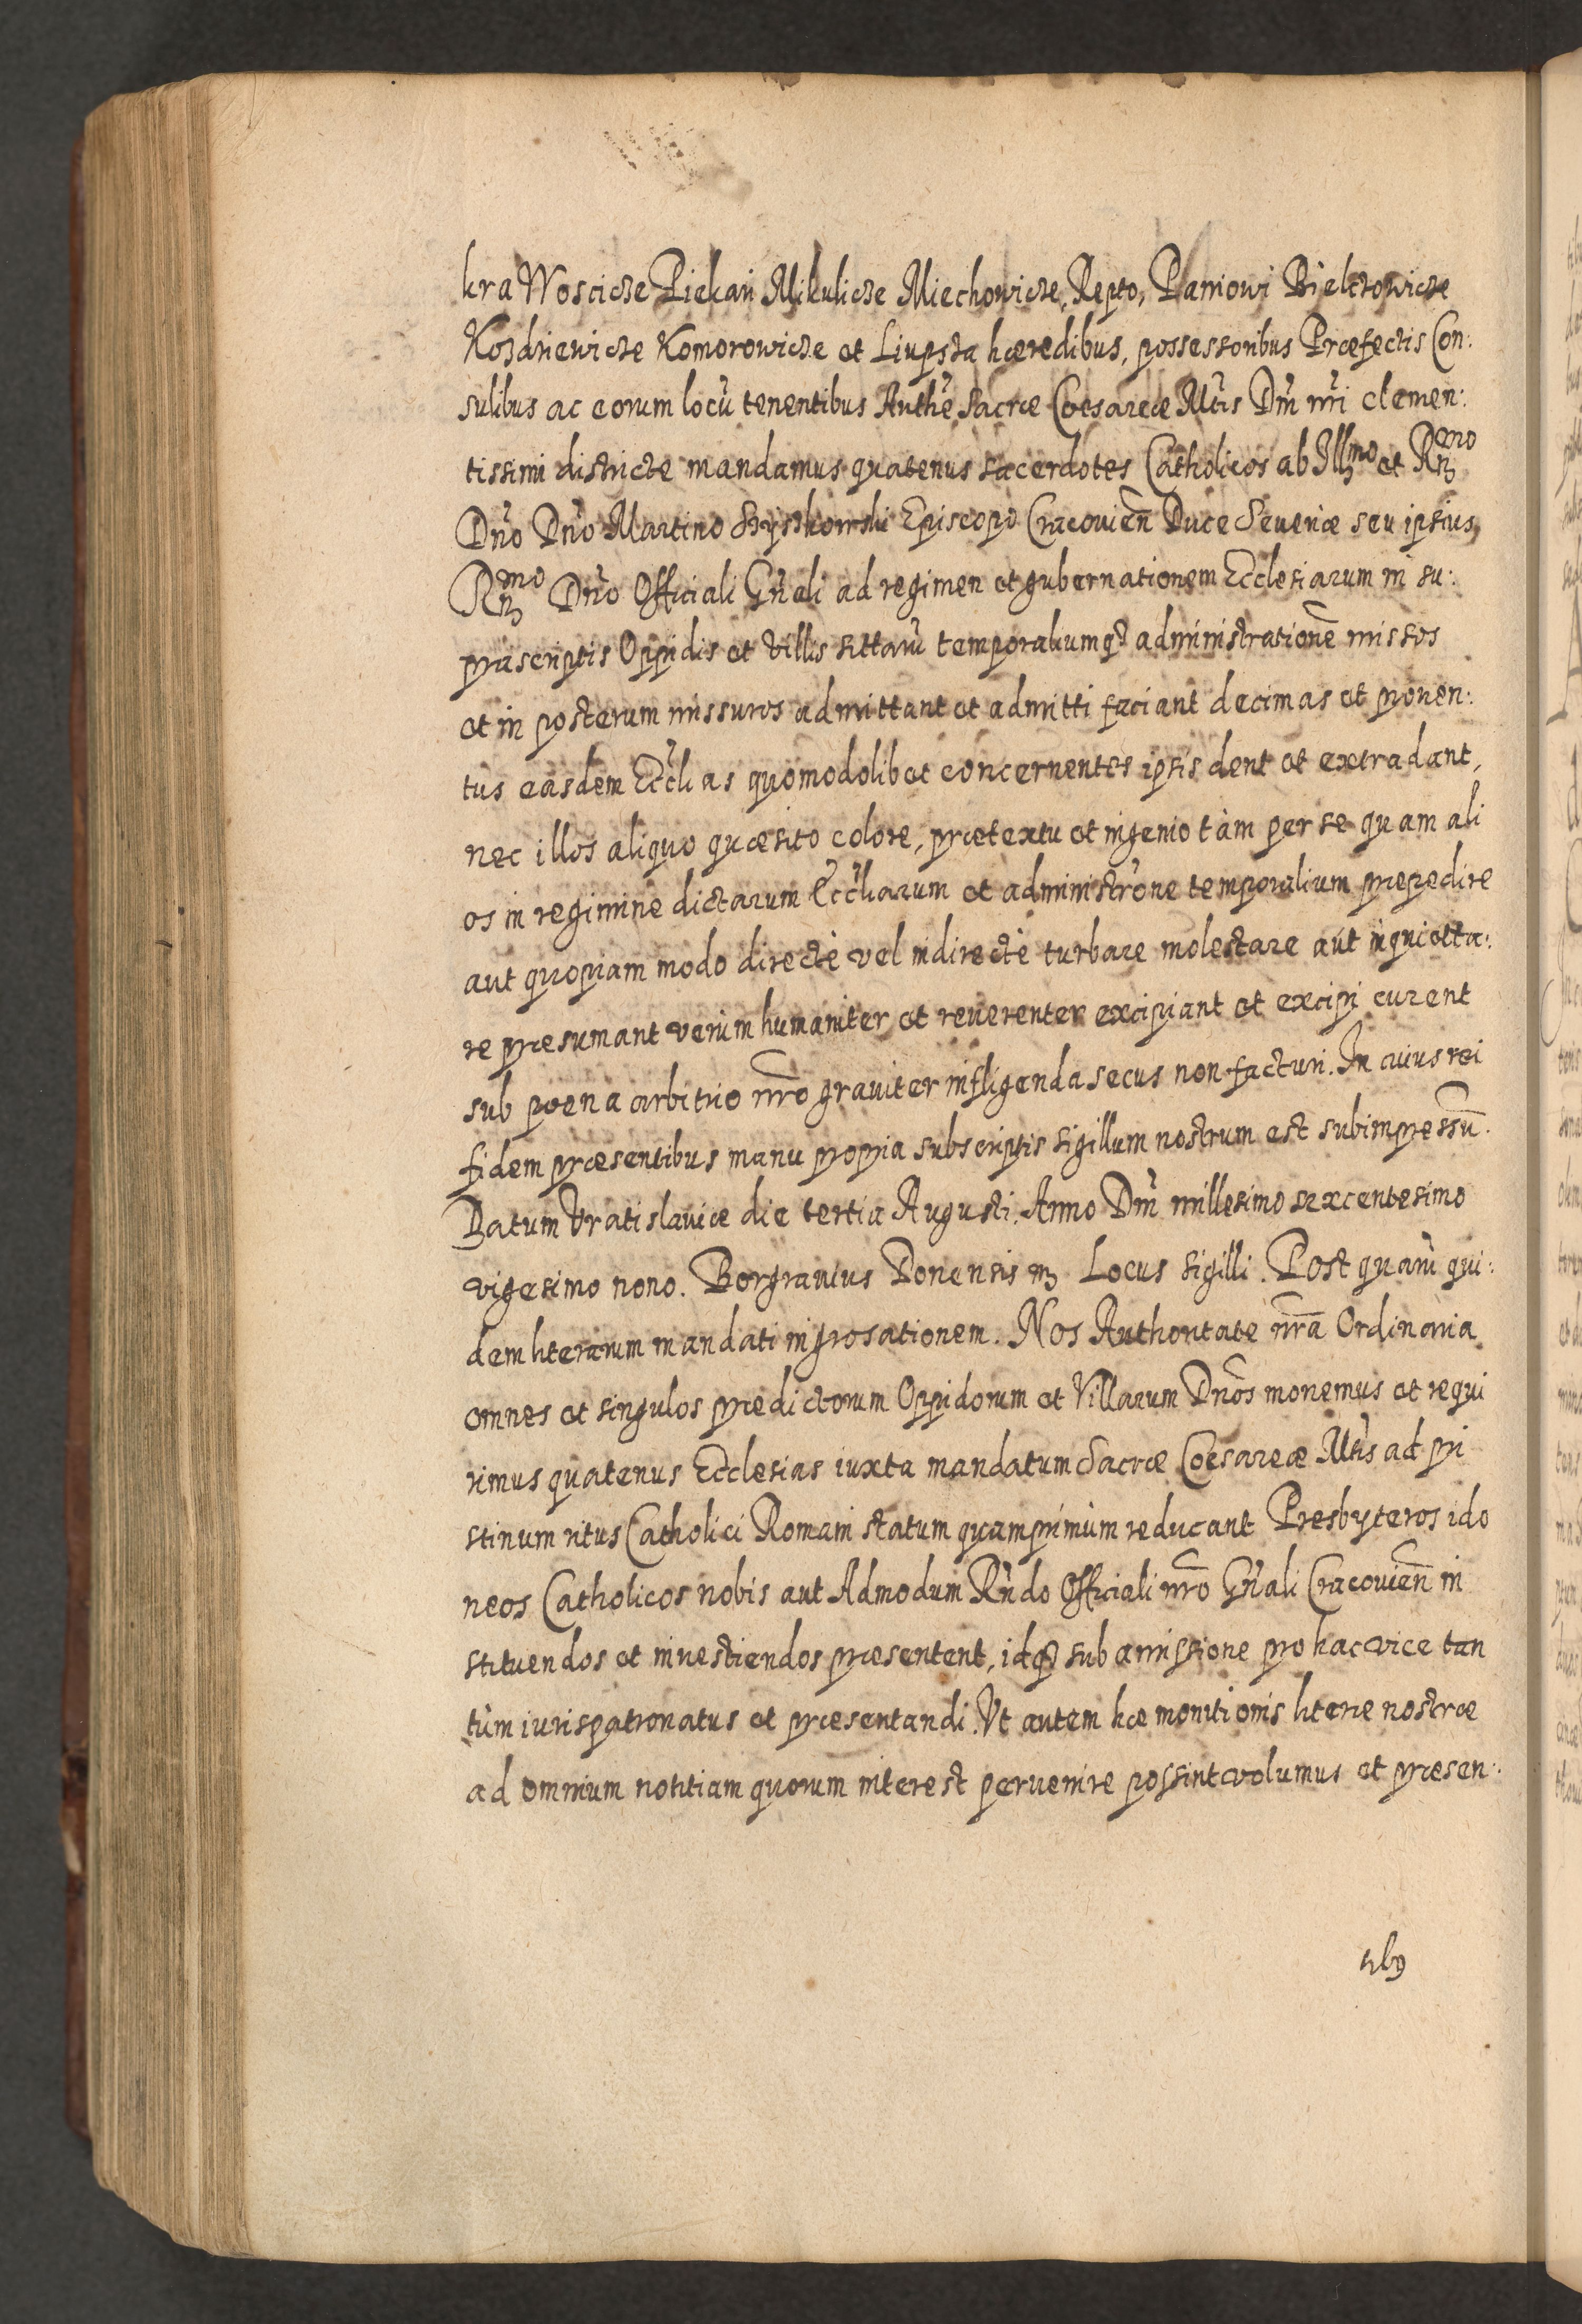 kra Woscicze Piekari Mikulicze Miechowicze, Repto, Paniowi Bielczowicze
Kozdriewicze Komorowicze et Liupsza hæredibus, possessoribus Præfectis Con:
sulibus ac eorum locũ tenentibus Authẽ Sacræ Cæsareæ Mtis Dñi nri clemen:
tissimi districte mandamus quatenus sacerdotes Catholicos ab Illmo et Rmo
Dño Dño Martino Szyszkowski Episcopo Cracovieñ Duce Severiæ seu ipsius
Rmo Dño Officiali Gñali ad regimen et gubernationem Ecclesiarum in su:
prascriptis Oppidis et Villis sittarũ temporaliumq3 administrationẽ missos
et in posterum missuros admittant et admitti faciant decimas et proven:
tus easdem Ecclias quomodolibet concernentes ipsis dent et extradant,
nec illos aliquo quæsito colore, prætextu et ingenio tàm per se quam ali
os in regimine dictarum Eccliarum et administrõne temporalium præpedire
aut quopiam modo directè vel indirectè turbare molestare aut inquietta:
re præsumant verùm humaniter et reverenter excipiant et excipi curent
sub poena arbitrio nrõ graviter infligenda secus non facturi. In cuius rei
fidem præsentibus manu propria subscriptis sigillum nostrum est subimpressũ.
Datum Vratislaviæ die tertia Augusti. Anno Dñi millesimo sexcentesimo
vigesimo nono. Borgravius Donensis mp Locus sigilli. Post quarũ qui:
dem literarum mandati ingrosationem. Nos Authoritate nrã Ordinaria
omnes et singulos prædictorum Oppidorum et Villarum Dños monemus et requi
rimus quatenus Ecclesias iuxta mandatum Sacræ Cæsareæ Mtis ad pri
stinum ritus Catholici Romani statum quamprimùm reducant Presbyteros ido
neos Catholicos nobis aut Admodum Rñdo Officiali nrõ Gñali Cracovieñ in
stituendos et investiendos præsentent, idq3 sub amissione pro hac vice tan
tùm iurispatronatus et præsentandi. Vt autem hæ monitionis literæ nostræ
ad omnium notitiam quorum interest pervenire possint volumus et præsen: